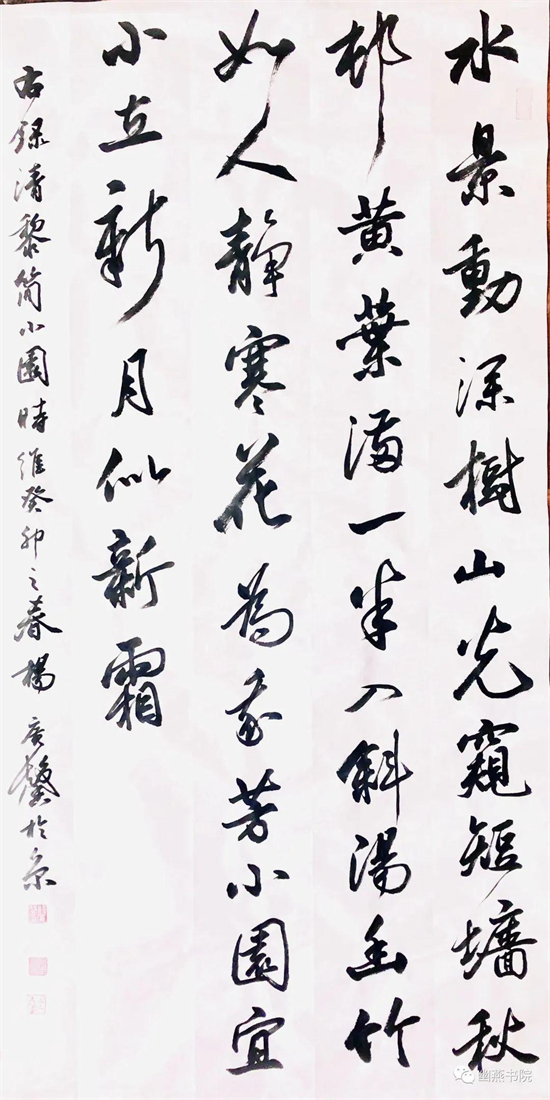 水景動深樹山光窺短墻秋
邨黄葉滿一半入斜陽幽竹
如人靜寒花為我芳小園宜
小立新月似新霜
右録清黎简小園時維癸卯之春楊广馨於京
幽燕书院